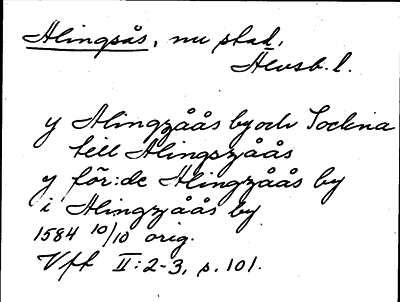 Alingsås, nu stad,
Älvsb. l.
y Alingzåås by och Sockna
till Alingszåås
y för:de Alingzåås by
i Alingzåås by
1584 10/10 orig.
Vff II:2-3, s. 101.